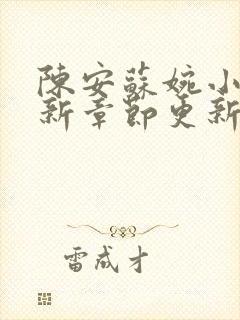 陳安蘇婉小
新章節更新
雷成才